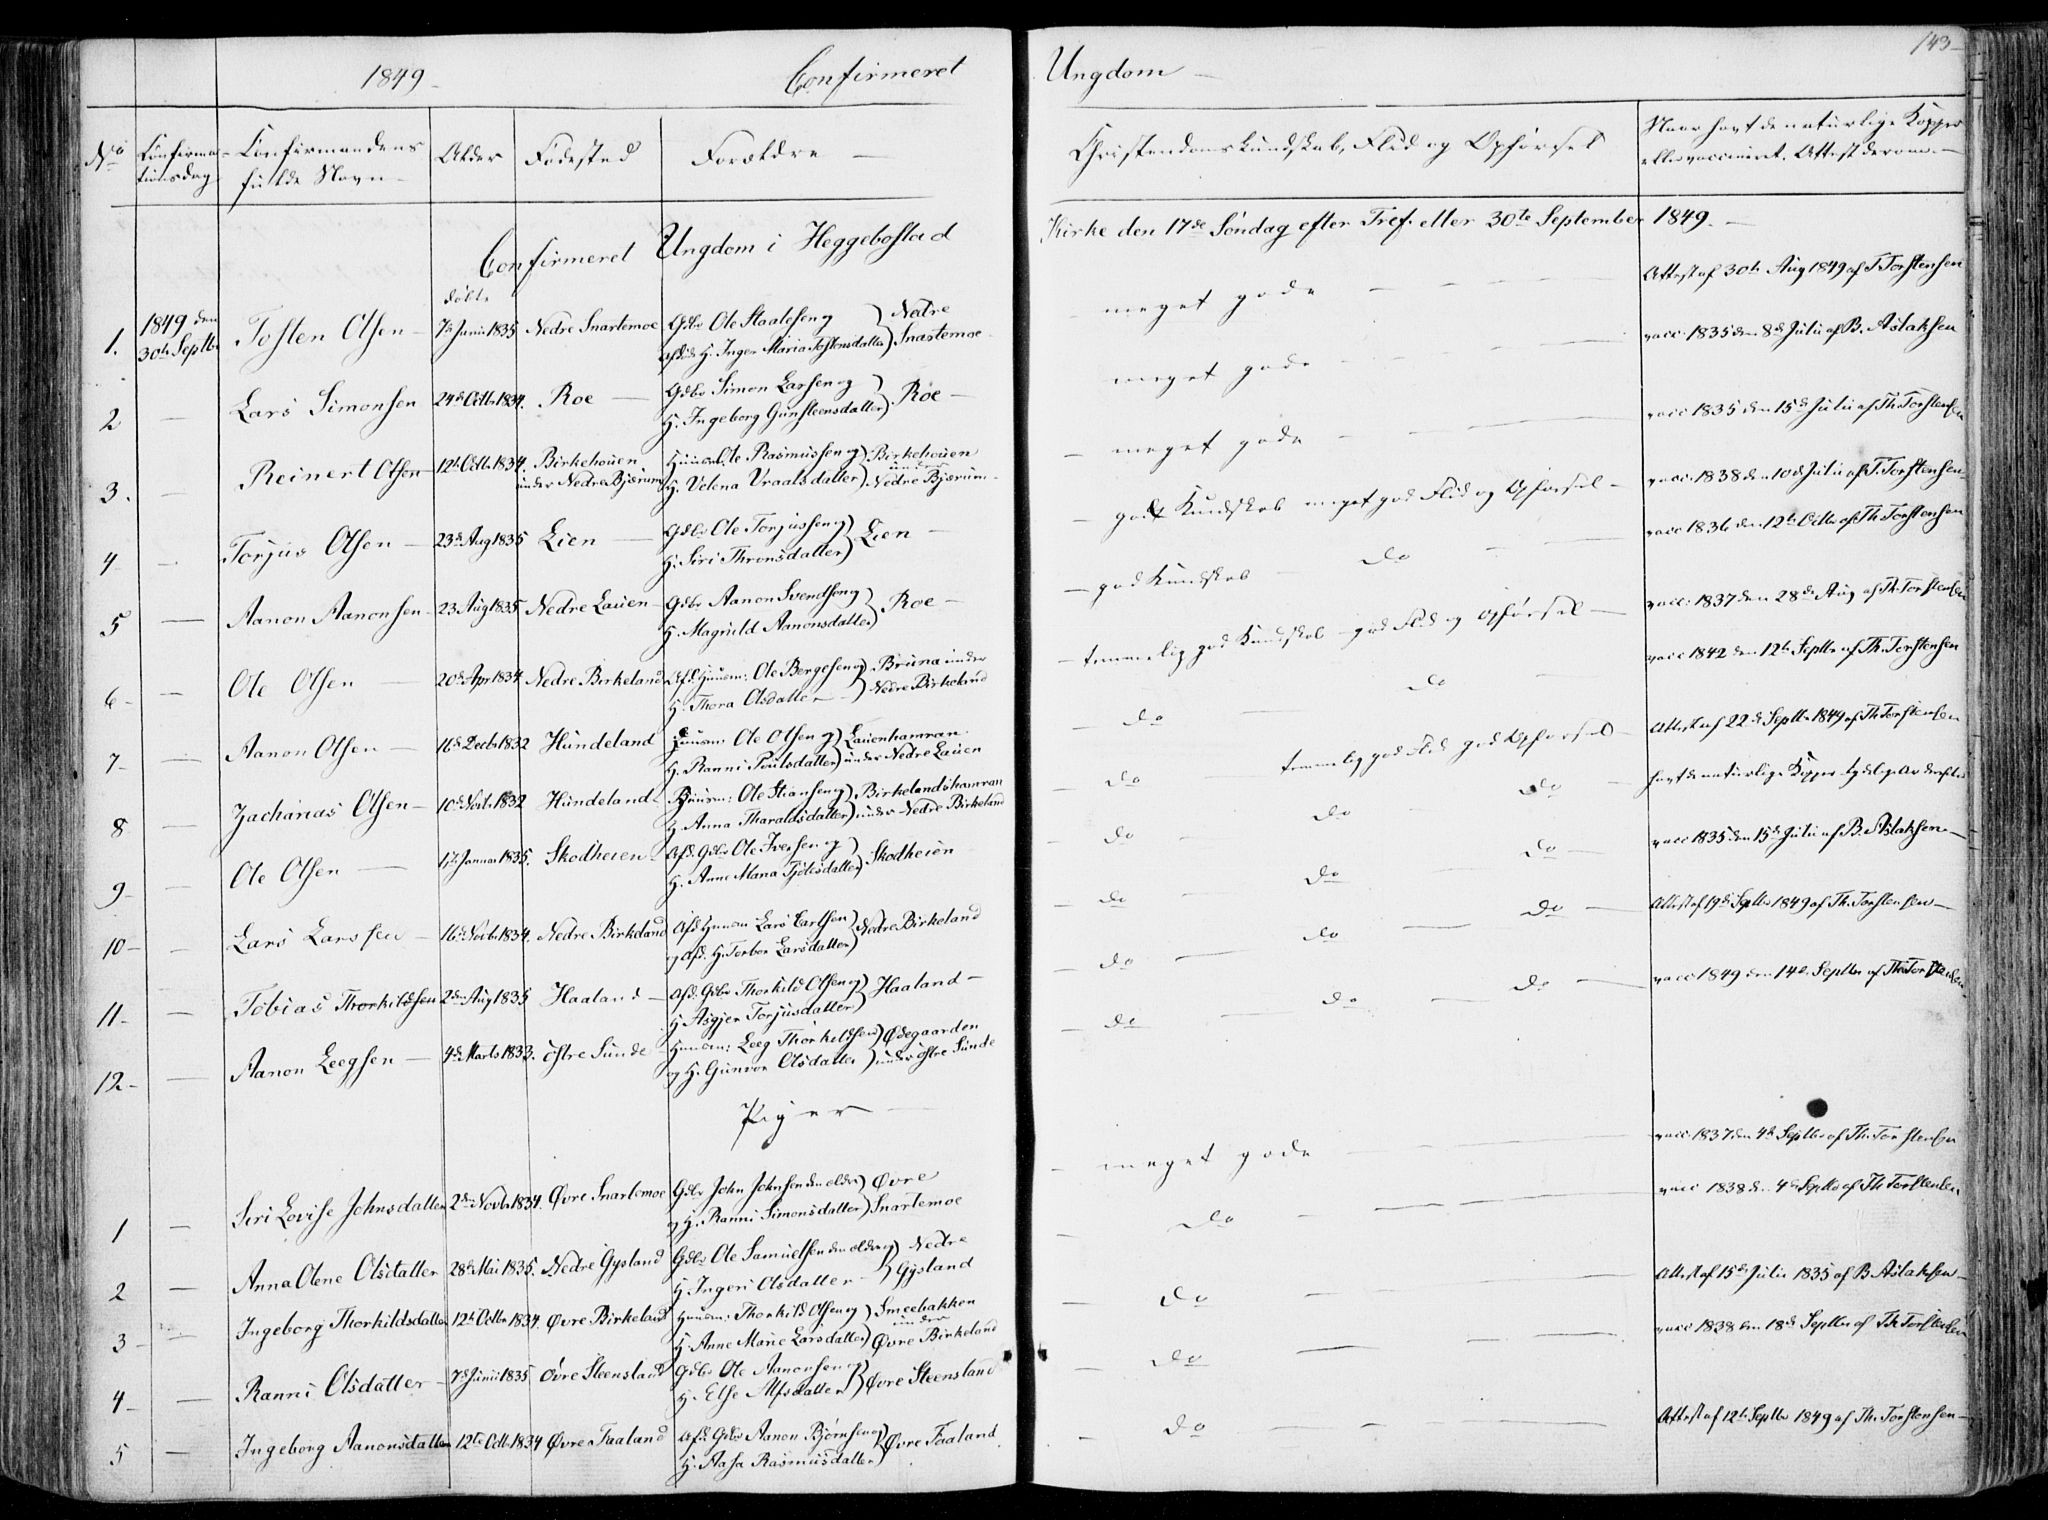 1849 - Confirmeret
No Confirmationsdag Confirmandens fulde Navn - Alder Fødested Forældre -
Confirmeret Ungdom i Heggebostad
døbt
1. 1849 den 30te Septbr Tosten Olsen - 7de Junii 1835 Nedre Snartemoe Gdbr Ole Staalesen og ) Nedre
Inger Maria Tostensdatter ) Snartemoe -
2 - Lars Simonsen 24de Octbr 1834. Roe - Gdbr Simon Larsen og )
H. Ingeborg Gunsteensdatter ) Roe -
3. - Reinert Olsen - 12te Octbr 1834. Birkehouen Huusm: Ole Rasmussen og ) Birkehouen
under Nedre Bjærum H. Velena Vraalsdatter ) under Nedre Bjærum -
4 - Torjus Olsen - 23de Aug 1835 Lien - Gdbr Ole Torjussen og )
H. Siri Thronsdatter ) Lien -
5 - Aanon Aanonsen - 23 Aug 1835 Nedre Lauen - Gdbr Aanon Svendsen og )
H. Magnild Aanonsdatter ) Roe -
6 - - Ole Olsen - 20de Apr 1834 Nedre Birkeland Afd. Huusm: Ole Bergesen og ) Bruna under
H. Thora Olsdatter - ) Nedre Birkeland
7 - - Aanon Olsen - 16de Decbr 1832 Hundeland Huusm: Ole Olsen og ) Lauenhamran
H. Ranni Poulsdatter ) under Nedre Lauen
8 - Zacharias Olsen - 10de Novbr 1832 Hundeland - Huusm: Ole Stiansen og ) Birkelandshamran
H. Anna Tharaldsdatter ) under Nedre Birkeland
9 - - Ole Olsen - 17de Januar 1835. Skodheien - Afd. Gdbr Ole Iversen og )
H. Anne Maria Tjølesdatter ) Skodheien -
10 - - Lars Larssen - 16de Novbr 1834. Nedre Birkeland Afd Huusm: Lars Carlsen )
og Afd. H. Torbor Larsdatter ) Nedre Birkeland
11 - - Tobias Thorkildsen 2den Aug 1835 Haaland - Afd. Gdbr Thorkild Olsen og )
H. Asgjer Torjusdatter ) Haaland -
12 - - Aanon Leegsen - 4de Marts 1833. østre Sunde - Huusm: Leeg Thorkildsen ) Ødegaarden
og H. Gunvor Olsdatter ) under østre Sunde
Piger -
1 - Siri Lovise Johnsdatter 2den Novbr 1834. Øvre Snartemoe Gdbr John Johnsen den ældre ) Øvre
og H. Ranni Simonsdatter ) Snartemoe
2 - Anna Olene Olsdatter 28de Mai 1835. Nedre Gysland Gdbr Ole Samuelsen den ældre og ) Nedre
H. Ingeri Olsdatter - ) Gysland
3 - - Ingeborg Thorkildsdatter 12te Octbr 1834. Øvre Birkeland Huusm: Thorkild Olsen og ) Smeebakken
H. Anne Marie Larsdatter ) under Øvre Birkeland
4 - - Ranni Olsdatter - 7de Junii 1835 Øvre Steensland Gdbr Ole Aanonsen og )
H. Else Alfsdatter ) Øvre Steensland
5 - Ingeborg Aanonsdatter 12te Octbr 1834 Øvre Faaland Afd. Gdbr Aanon Bjørnsen og )
H. Aasa Rasmusdatter ) Øvre Faaland
143 -
Ungdom -
Christendomskundskab, Flid og Opførsel Naar havt de naturlige Kopper
eller vaccineret. Attest derom. -
Kirke den 17de Søndag efter Tref. eller 30te September 1849. -
- meget gode - - - - Attest af 30te Aug 1849 af T. Torstensen
meget gode - - - vacc 1835 den 8de Julii af B. Aslaksen
- meget gode - - - vacc 1835 den 15de Julii af Th. Torstensen
- godt Kundskab meget god Flid og Opførsel - vacc: 1838 den 10de Julii af T. Torstensen -
- god Kundskab - Do - - vacc 1836 den 12te Octbr af Th. Torstensen
- temmelig god Kundskab - god Flid og Opførsel - vacc: 1837 den 28de Aug af Th. Torstensen
- Do - Do - vacc 1842 den 12te Septbr af Th. Torstensen
- Do - temmelig god Flid god Opførsel - Attest af 22de Septbr 1849 af Th. Torstensen
- Do - Do Do - havt de naturlige Kopper tydelige Ar derefter
- Do - Do - Do - vacc 1835 den 15de Julii af B. Aslaksen -
- Do - Do - Do - Attest af 19de Septbr 1849 af Th. Torstensen -
- Do - Do - Do - vacc: 1849 den 14de Septbr af Th. Torstensen
- meget gode - - - vacc: 1837 den 4de Septbr af Th. Torstensen
- Do - - - vacc 1838 d. 4de Septbr af Th Torstensen
- Do - - - Attest af 15de Julii 1835 af B Aslaksen -
- Do - - - vacc 1838 den 18de Septbr af Th Torstensen
- Do - - - Attest af 12te Septbr 1849 af Th. Torstensen -